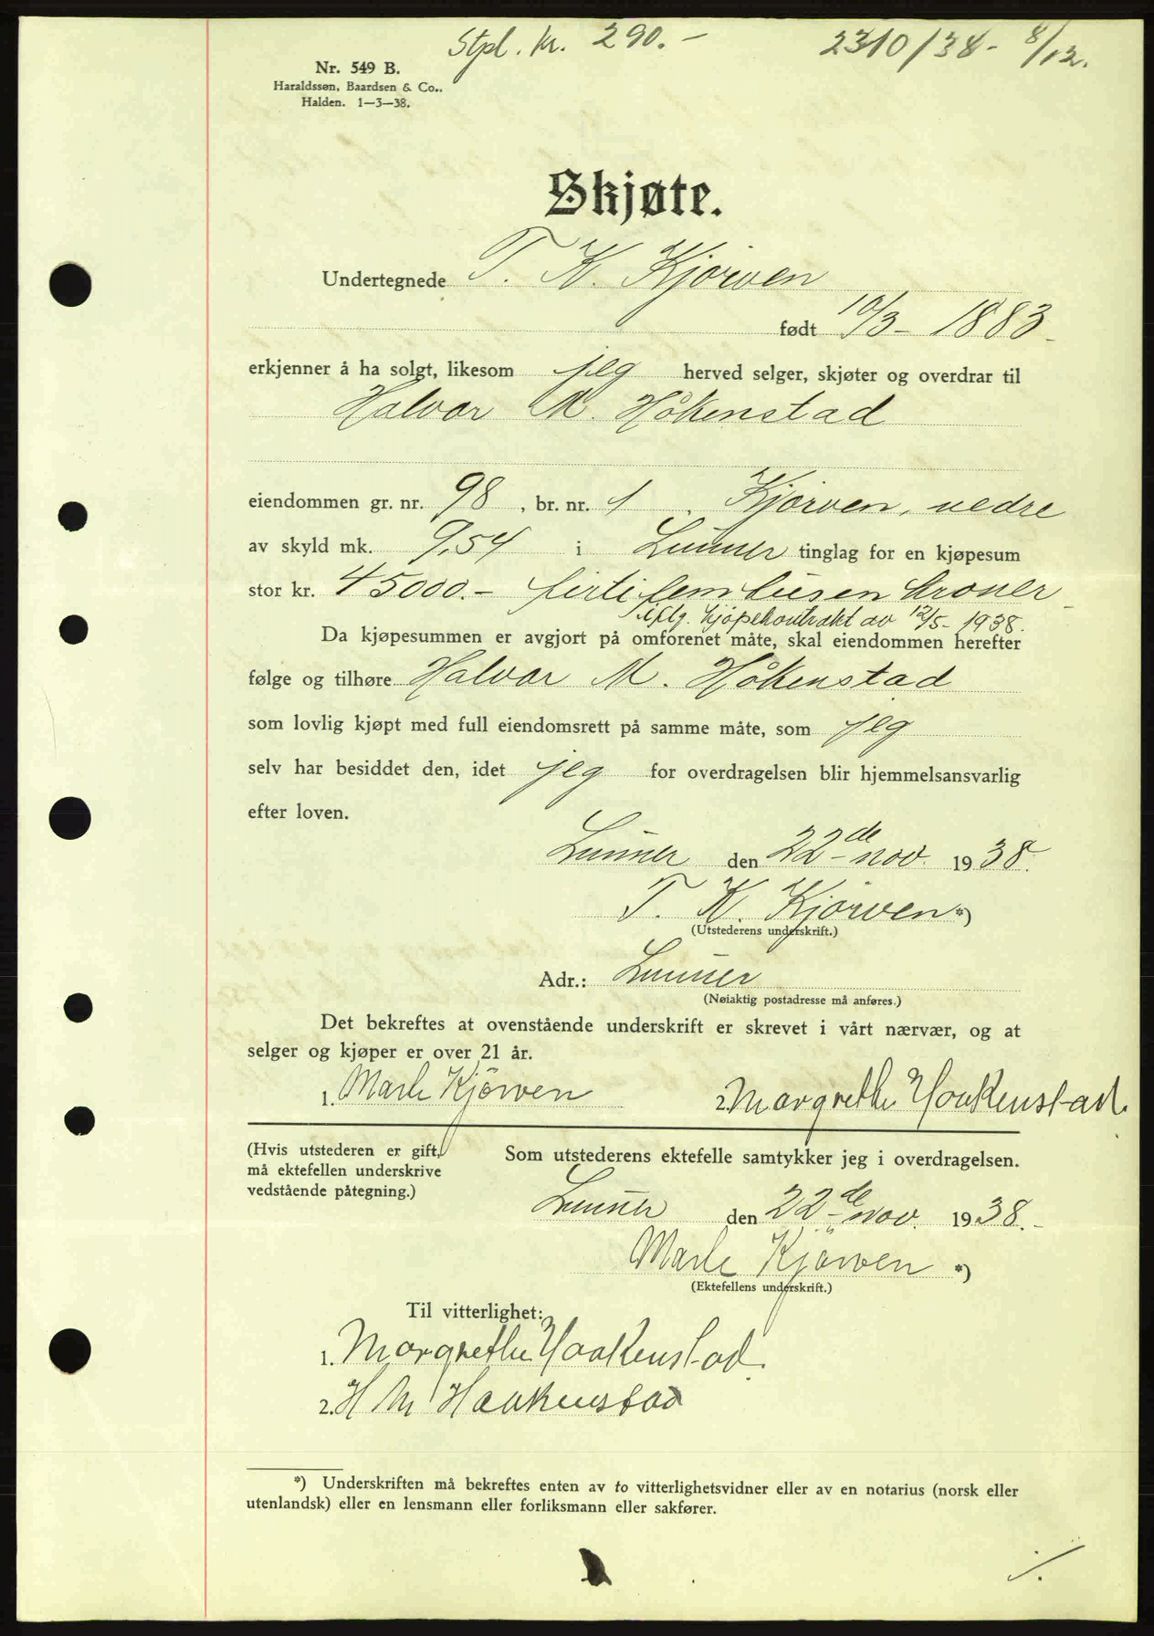 Stpl. kr. 290.-
2310/38- 8/12.
Nr. 549 B.
Haraldssøn, Baardsen & Co..
Halden. 1—3—38.
Skjøte.
Undertegnede T. K. Kjørven
født 10/3- 1883.
erkjenner å ha solgt, likesom jeg herved selger, skjøter og overdrar til
Halvor M. Håkenstad
eiendommen gr. nr. 98, br. nr. 1. Kjørven, nedre
av skyld mk. 9,54 i Lunner tinglag for en kjøpesum
stor kr. 45000.- firti fem tusen kroner
iflg. kjøpekontrakt av 12/5- 1938.
Da kjøpesummen er avgjort på omforenet måte, skal eiendommen herefter
følge og tilhøre Halvor M. Håkenstad
som lovlig kjøpt med full eiendomsrett på samme måte, som jeg
selv har besiddet den, idet jeg for overdragelsen blir hjemmelsansvarlig
efter loven.
Lunner den 22de nov. 1938.
T. K. Kjørven *)
(Utstederens underskrift.)
Adr.: Lunner
(Nøiaktig postadresse må anføres.)
Det bekreftes at ovenstående underskrift er skrevet i vårt nærvær, og at
selger og kjøper er over 21 år.
1. Marle Kjörven 2. Margrethe Haakenstad.
(Hvis utstederen er gift,
må ektefellen underskrive
vedstående påtegning.)
Som utstederens ektefelle samtykker jeg i overdragelsen.
Lunner den 22de nov. 1938.-
Marle Kjörven *)
(Ektefellens underskrift.)
Til vitterlighet:
1. Margrethe Haakenstad.
2. H M Haakenstad
*) Underskriften må bekreftes enten av to vitterlighetsvidner eller av en notarius (norsk eller
utenlandsk) eller en lensmann eller forliksmann eller sakfører.
./.